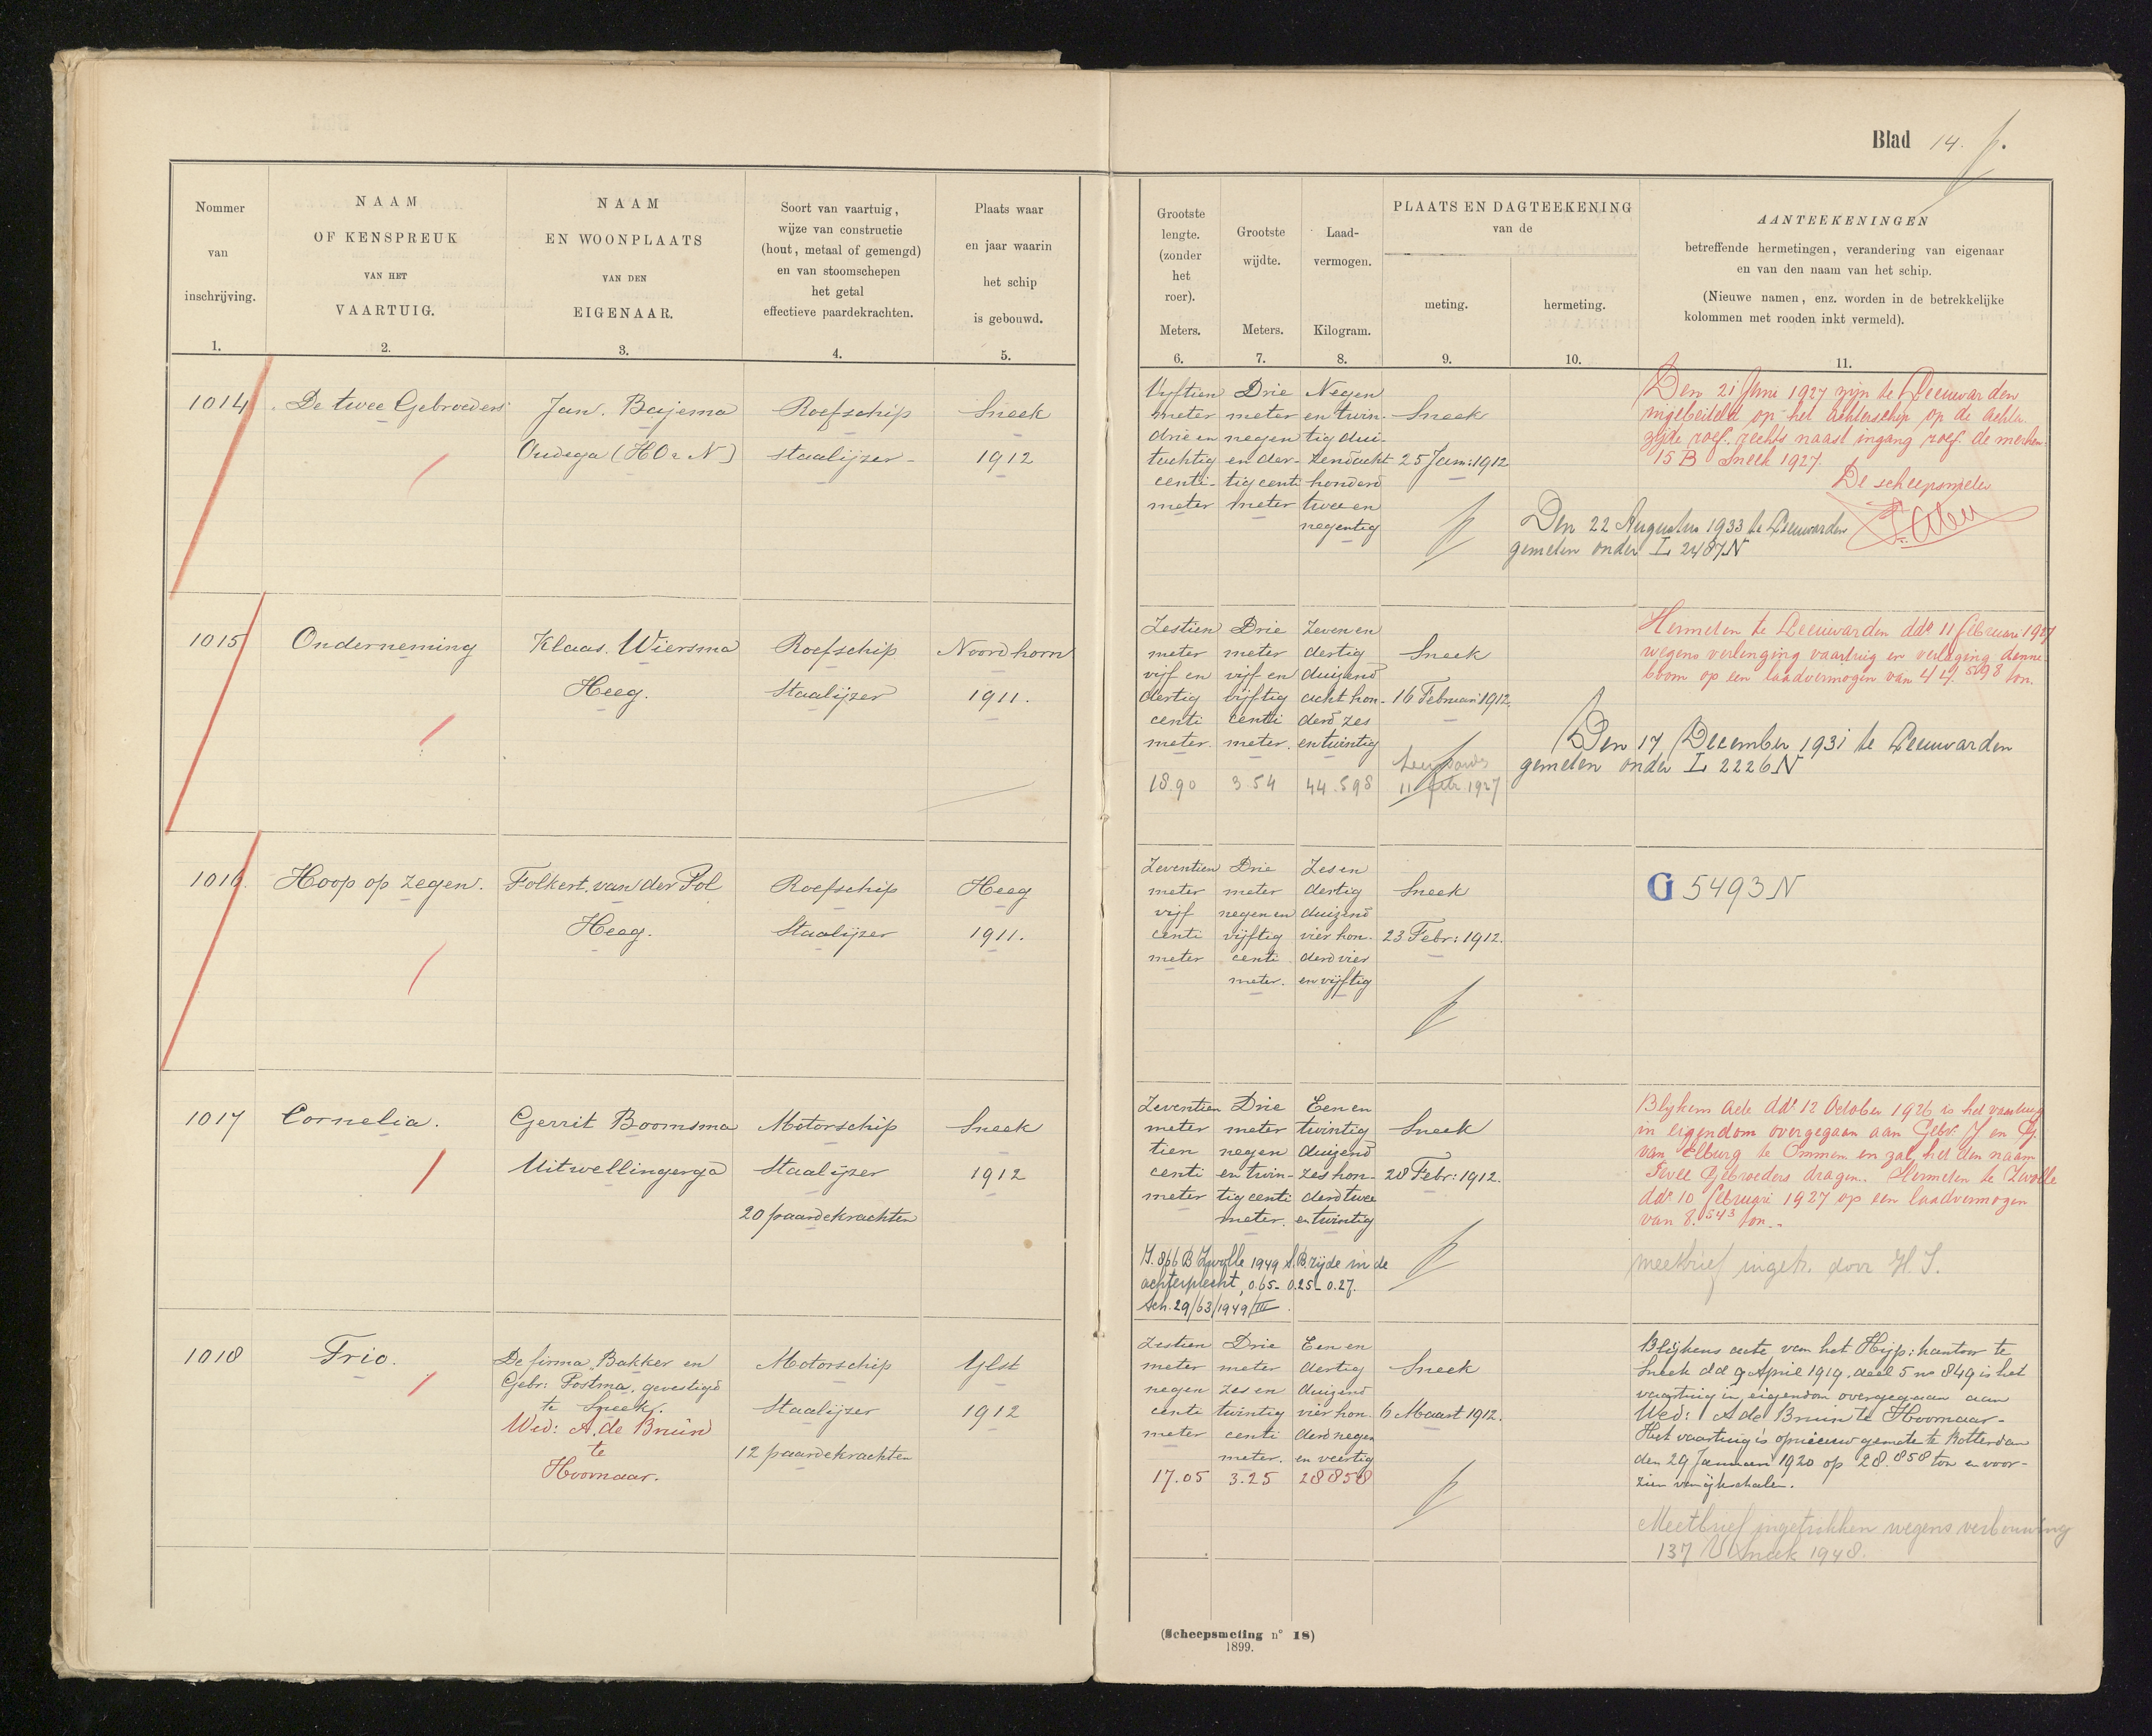 Blad 14.
Nommer
van
inschrijving.
1.
NAAM
OF KENSPREUK
VAN HET
VAARTUIG.
2.
NAAM
EN WOONPLAATS
VAN DEN
EIGENAAR.
3.
Soort van vaartuig,
wijze van constructie
(hout, metaal of gemengd)
en van stoomschepen
het getal
effectieve paardekrachten.
4.
Plaats waar
en jaar waarin
het schip
is gebouwd.
5.
Grootste
lengte.
(zonder
het
roer).
Meters.
6.
Grootste
wijdte.
Meters.
7.
Laad-
vermogen.
Kilogram.
8.
PLAATS EN DAGTEEKENING
van de
meting.
9.
hermeting.
10.
AANTEEKENINGEN
betreffende hermetingen, verandering van eigenaar
en van den naam van het schip.
(Nieuwe namen, enz. worden in de betrekkelijke
kolommen met rooden inkt vermeld).
11.
1014
De twee Gebroeders
Jan. Bajema
Oudega (HOeN)
Roefschip
staalijzer
Sneek
1912
Vijftien
meter
drie en
tachtig
centi-
meter
Drie
meter
negen
en der-
tig centi
meter
Negen
en twin-
tig dui-
zend acht
honderd
twee en
negentig
Sneek
25 Jan: 1912
Den 22 Augustus 1933 te Leeuwarden
gemeten onder L 2487 N
Den 21 Juni 1927 zijn te Leeuwarden
ingebeiteld op het achterschip op de achter
zijde roef. rechts naast ingang roef de merken
15 B Sneek 1927.
De scheepsmeter
1015
Onderneming
Klaas. Wiersma
Heeg.
Roefschip
Staalijzer
Noordhorn
1911.
Zestien
meter
vijf en
dertig
centi
meter.
18.90
Drie
meter
vijf en
vijftig
centi
meter.
3.54
Zeven en
dertig
duizend
acht hon-
derd zes
en twintig
44.598
Sneek
16 Februari 1912.
Leeuwarden
11 febr. 1927
Den 17 December 1931 te Leeuwarden
gemeten onder L 2226 N
Hermeten te Leeuwarden ddo 11 februari 1927
wegens verlenging vaartuig en verlaging denne
boom op een laadvermogen van 44.598 ton.
1016.
Hoop op zegen.
Folkert. van der Pol
Heeg.
Roefschip
Staalijzer
Heeg
1911.
Zeventien
meter
vijf
centi
meter
Drie
meter
negen en
vijftig
centi
meter.
Zes en
dertig
duizend
vier hon-
derd vier
en vijftig
Sneek
23 Febr: 1912.
G 5493 N
1017
Cornelia.
Gerrit Boomsma
Uitwellingerga
Motorschip
Staalijzer
20 paardekrachten
Sneek
1912
Zeventien
meter
tien
centi
meter
Drie
meter
negen
en twin-
tig centi
meter.
Een en
twintig
duizend
zes hon-
derd twee
en twintig
Sneek
28 Febr: 1912.
J. 866 B Zwolle 1949 S.B. zijde in de
achterplecht, 0.65 - 0.25 - 0.27.
Sch. 29/63/1949/III.
Blijkens acte ddo 12 October 1926 is het vaartuig
in eigendom overgegaan aan Gebr. J en G.
van Elburg te Ommen en zal het den naam
Twee Gebroeders dragen. Hermeten te Zwolle
ddo 10 februari 1927 op een laadvermogen
van 8.543 ton.-
meetbrief ingetr. door H.S.
1018
Trio.
De firma Bakker en
Gebr: Postma, gevestigd
te Sneek.
Wed: A. de Bruin
te
Hoornaar.
Motorschip
Staalijzer
12 paardekrachten
Ylst
1912
Zestien
meter
negen
centi
meter
17.05
Drie
meter
zes en
twintig
centi
meter.
3.25
Een en
dertig
duizend
vier hon-
derd negen
en veertig
28858
Sneek
6 Maart 1912.
Blijkens acte van het Hyp: kantoor te
Sneek dd 9 April 1919. deel 5 no 849 is het
vaartuig in eigendom overgegaan aan
Wed: A de Bruin te Hoornaar-
Het vaartuig is opnieuw gemeten te Rotterdam
den 29 Januari 1920 op 28.858 ton en voor-
zien van ijkschalen.
Meetbrief ingetrokken wegens verbouwing
137 V Sneek 1948.
(Scheepsmeting n° 18)
1899.